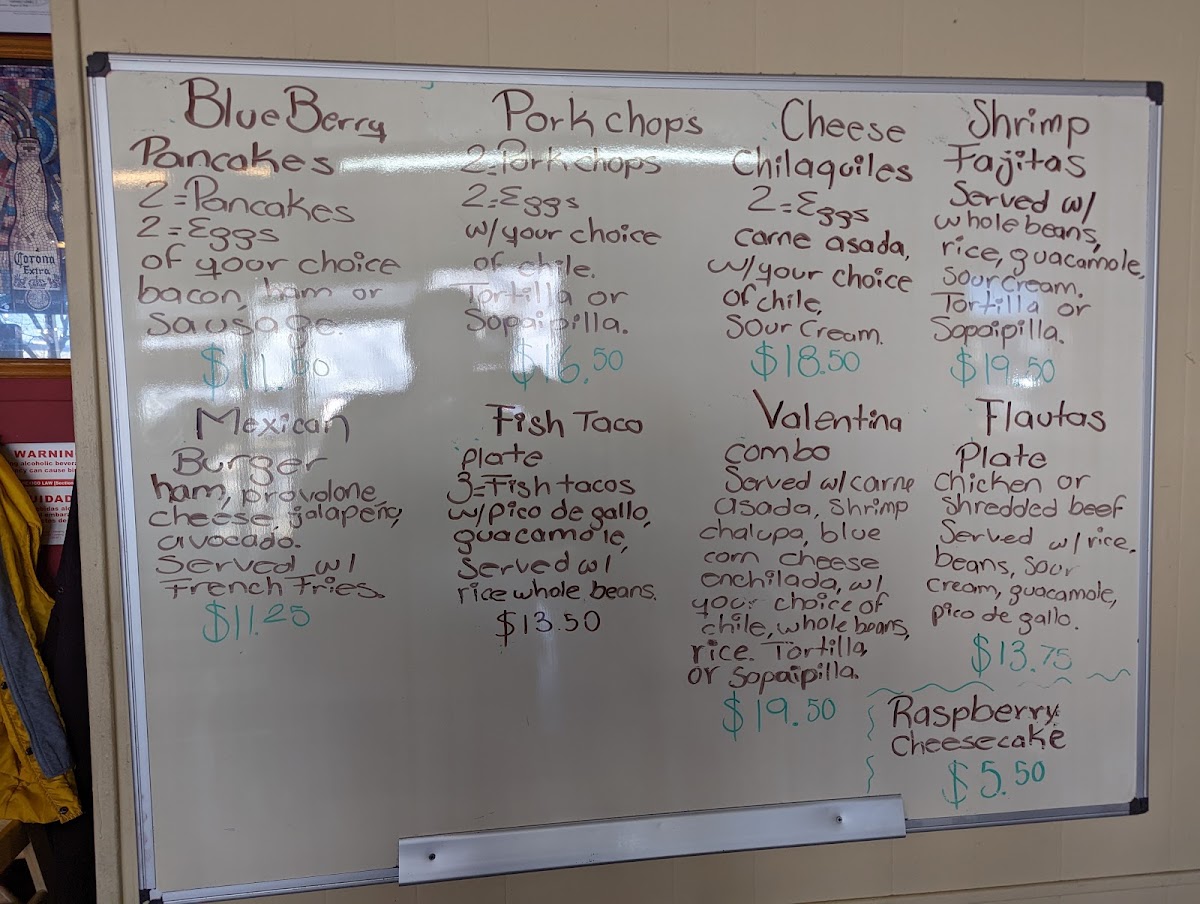 BlueBerry
Pancakes
2=Pancakes
2=Eggs
of your choice
bacon, ham or
Sausage.
Pork chops
2=Pork chops
2=Eggs
w/your choice
of chile.
Tortilla or
Sopaipilla.
$16.50
Cheese
Chilaquiles
2=Eggs
carne asada,
w/your choice
of chile,
Sour Cream.
$18.50
Shrimp
Fajitas
Served w/
whole beans,
rice, guacamole,
Sour cream.
Tortilla or
Sopaipilla.
$19.50
Mexican
Burger
ham, provolone
cheese, jalapeño,
avocado.
Served w/
French Fries.
$11.25
Fish Taco
plate
3=Fish tacos
w/pico de gallo,
guacamole,
Served w/
rice whole beans.
$13.50
Valentina
combo
Served w/carne
asada, Shrimp
chalupa, blue
corn cheese
enchilada, w/
your choice of
chile, whole beans,
rice. Tortilla
or Sopaipilla.
$19.50
Flautas
Plate
chicken or
Shredded beef
Served w/rice,
beans, sour
cream, guacamole,
pico de gallo.
$13.75
Raspberry
Cheesecake
$5.50
Corona
Extra
WARNIN